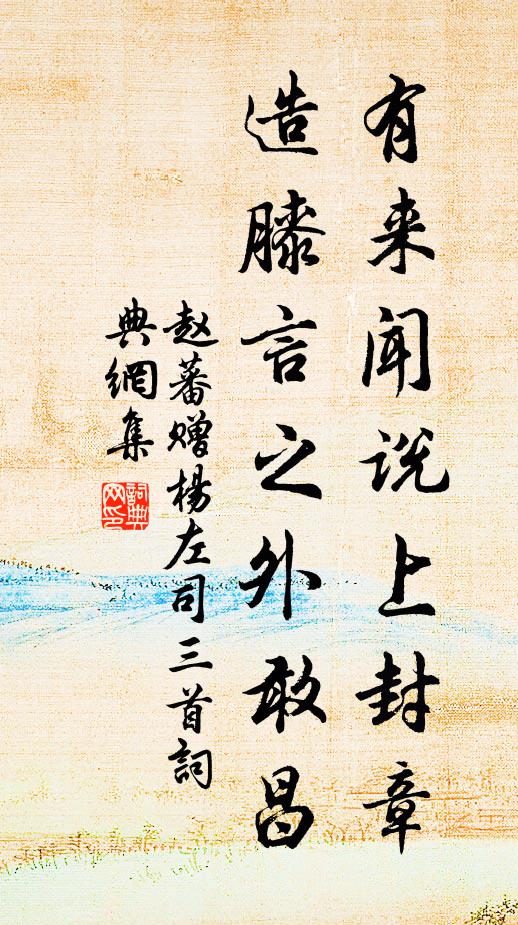 有来闻说上封章
造膝言之外敢昌
赵蕃赠杨左司三首詞
典網集
詞典网印